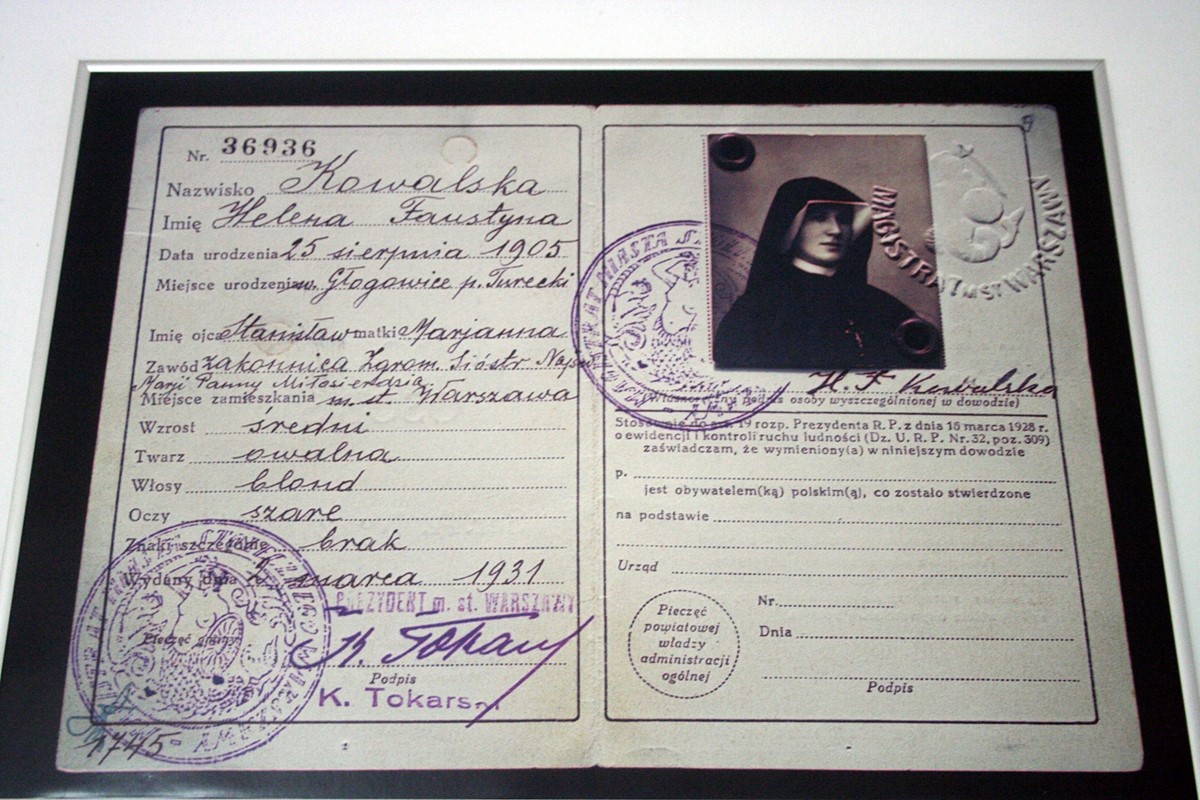 Nr. 36936
Nazwisko Kowalska
Imię Helena Faustyna
Data urodzenia 25 sierpnia 1905
Miejsce urodzenia w. Głogowice p. Turecki
Imię ojca Stanisław matki Marjanna
Zawód zakonnica Zgrom. Sióstr Najśw
Marji Panny Miłosierdzia
Miejsce zamieszkania m. st. Warszawa
Wzrost średni
Twarz owalna
Włosy blond
Oczy szare
Znaki szczególne brak
Wydany dnia marca 1931
PREZYDENT m. st. WARSZAWY
Pieczęć gminy
K. Tokars
Podpis
K. Tokars
1745
MAGISTRAT m. ST. WARSZAWY
MAGISTRAT MIASTA
H. F. Kowalska
(Własnoręczny podpis osoby wyszczególnionej w dowodzie)
Stosownie do art. 19 rozp. Prezydenta R. P. z dnia 16 marca 1928 r.
o ewidencji i kontroli ruchu ludności (Dz. U. R. P. Nr. 32, poz. 309)
zaświadczam, że wymieniony(a) w niniejszym dowodzie
p.
jest obywatelem(ką) polskim(ą), co zostało stwierdzone
na podstawie
Urząd
Pieczęć
powiatowej
władzy
administracji
ogólnej
Nr.
Dnia
Podpis